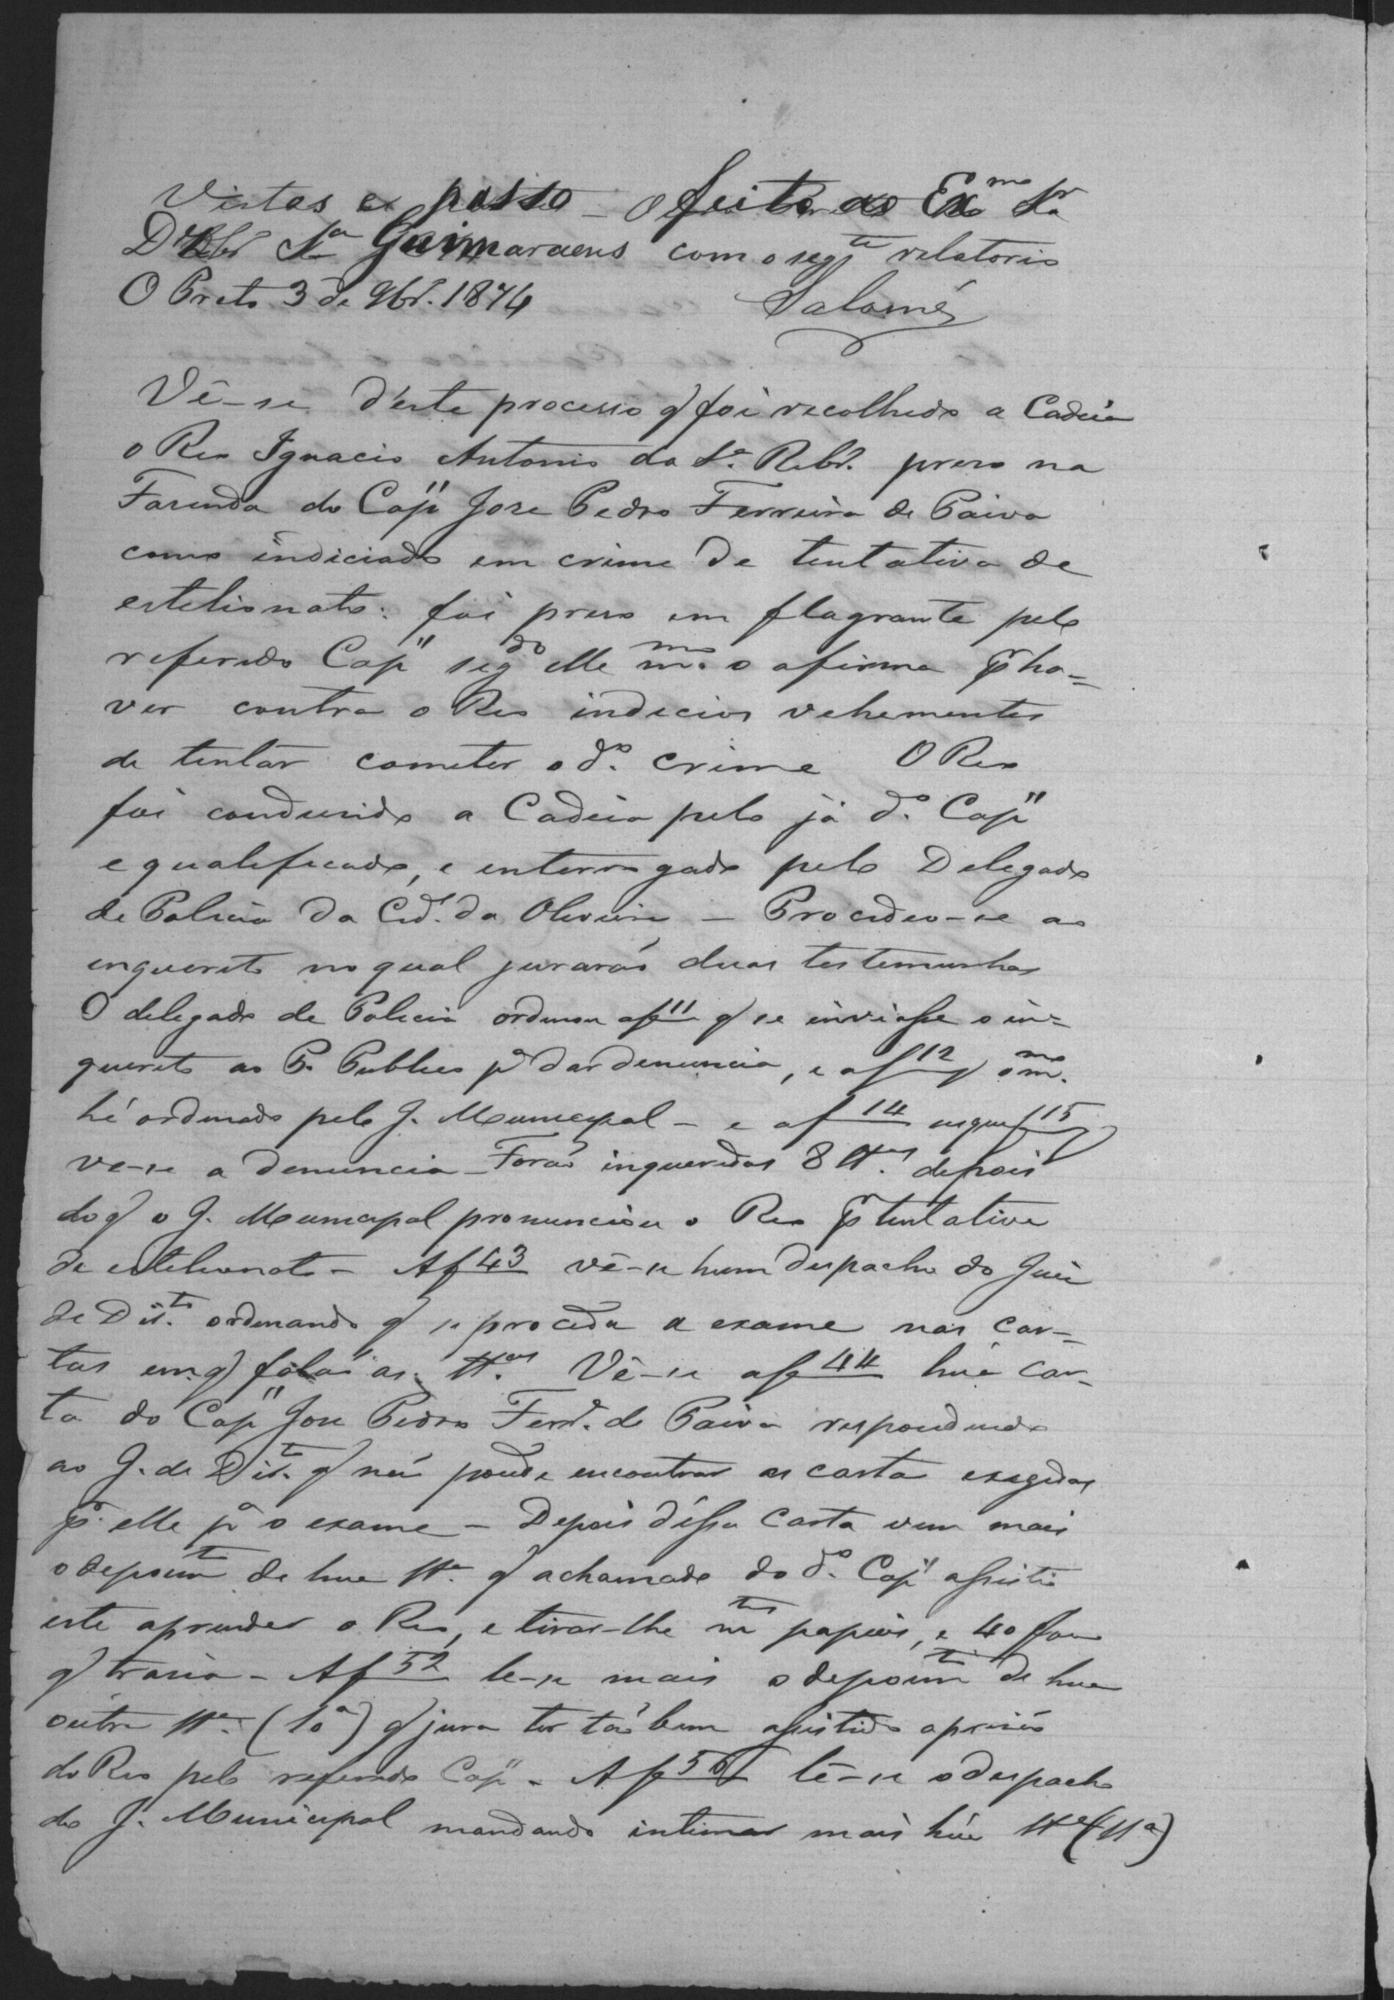 Vistas e passo o feito ao Exmo Sr
Dor Sa Guimaraens com o segte relatorio
O Preto 3 de 9br. 1874 Salomé
Vê-se d'este processo q foi recolhido a Cadêia
o Reo Ignacio Antonio da Sa. Ribr. preso na
Fazenda do Capm Jose Pedro Ferreira de Paiva
como indiciado em crime de tentativa de
estelionato: foi preso em flagrante pelo
referido Capm segdo elle mmo. o afirma pr ha=
ver contra o Reo indicios vehementes
de tentar cometer o do. crime O Reo
foi condusido a Cadêia pelo já do. Capm
e qualificado, e enterrogado pelo Delegado
de Policia da Cide. da Oliveira – Procedeo-se ao
enquerito no qual jurarão duas testemunhas
O delegado de Policia ordenou a f 11 q se inviasse o in=
querito ao P. Publico pa dar denuncia, e a f 12 o mmo.
hé ordenado pelo J. Municipal – e a f 14 usque f 15
ve-se a denuncia – Forão inqueridas 8 ttas. depois
do q o J. Municipal pronunciou o Reo pr tentativa
de estelionato – A f 43 vê-se hum despacho do Juiz
de Dirto. ordenando q se proceda a exame nas car=
tas em q falão as ttas. Vê-se a f 44 hũa car=
ta do Capm Jose Pedro Ferra. de Paiva respondendo
ao J. de Dirto. q não poude encontrar as carta exegidas
pr. elle pa o exame – Depois d'éssa carta vem mais
o depoimto de hua tta. q a chamado do do. Capm assistio
este aprender o Reo, e tirar-lhe mtos papeis, e 40 $000
q trasia – A f 52 le-se mais o depoimto de hua
outra tta. (10a) q jura ter tão bem assistido a prisão
do Reo pelo referido Capm – A f 56 lê-se o despacho
do J. Municipal mandando intimar mais hũa tta (11a)